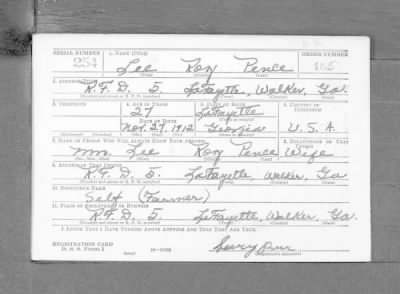 SERIAL NUMBER 1. NAME (Print) ORDER NUMBER
254 Lee Roy Pence 185
(First) (Middle) (Last)
2. ADDRESS (Print)
R.F.D. 5 LaFayette, Walker, Ga.
3. TELEPHONE 4. AGE IN YEARS 5. PLACE OF BIRTH 6. COUNTRY OF CITIZENSHIP
27 LaFayette
DATE OF BIRTH
Nov. 27, 1912 Georgia U.S.A.
7. NAME OF PERSON WHO WILL ALWAYS KNOW YOUR ADDRESS 8. RELATIONSHIP OF THAT PERSON
Mrs. Lee Roy Pence Wife
(Mr., Mrs., Miss) (First) (Middle) (Last)
9. ADDRESS OF THAT PERSON
R.F.D. 5 LaFayette, Walker, Ga
10. EMPLOYER'S NAME
Self (Farmer)
11. PLACE OF EMPLOYMENT OR BUSINESS
R.F.D. 5 LaFayette, Walker, Ga.
I AFFIRM THAT I HAVE VERIFIED ABOVE ANSWERS AND THAT THEY ARE TRUE.
REGISTRATION CARD
D. S. S. FORM 1